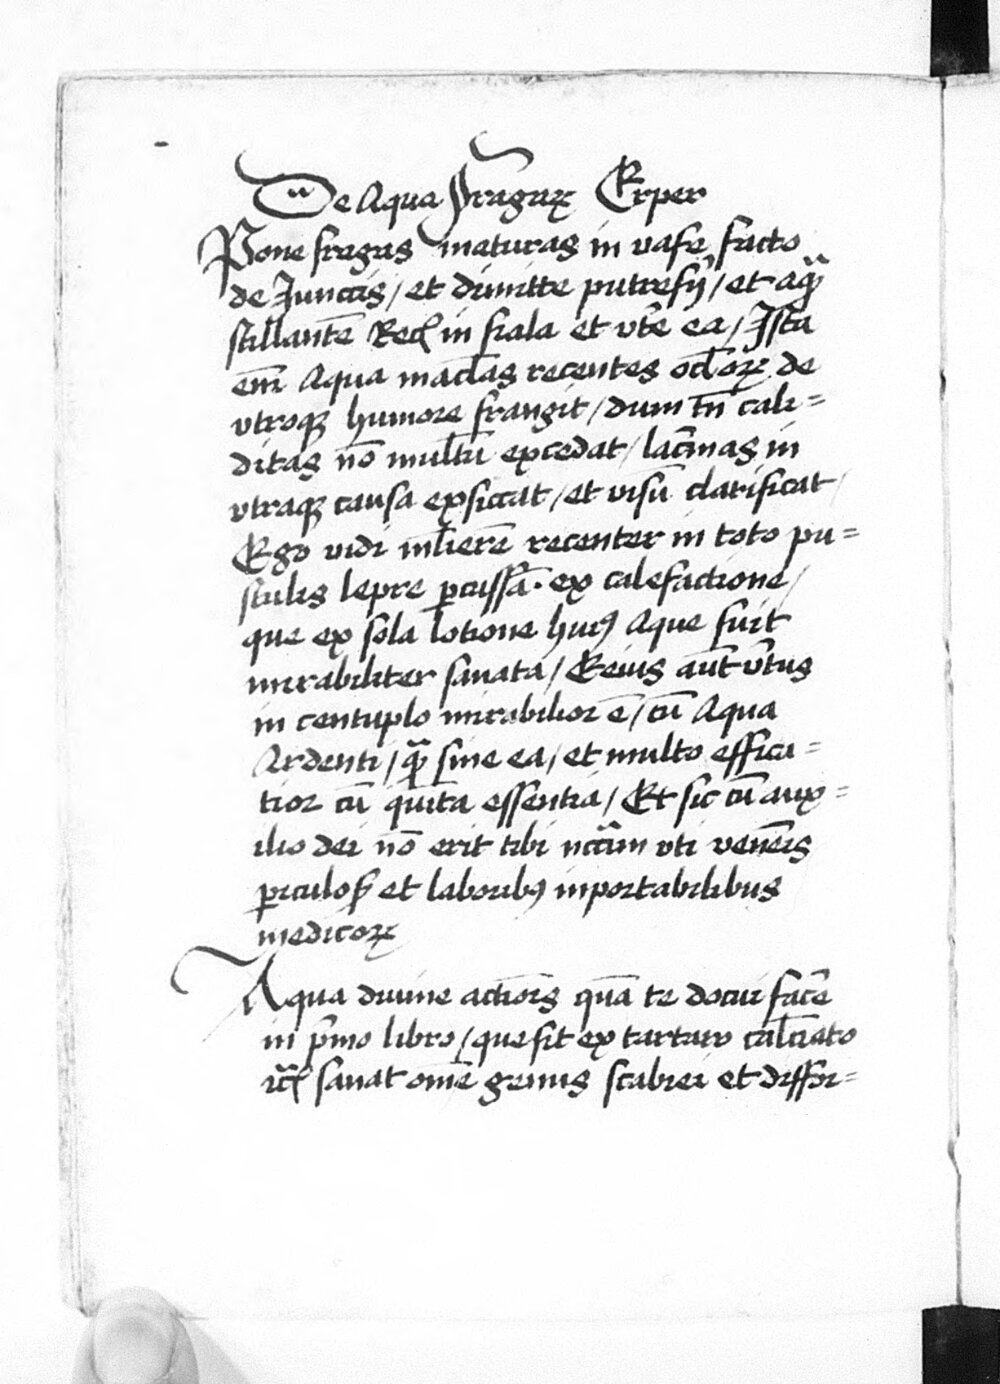 De Aqua Fragaꝝ Erper
Pone fragas maturas in vase facto
de Junctis / et dimitte putrefij / et aqᷓ
stillantē Recꝭ in fiala et vte͂ ea / Ista
em̄ Aqua macl̄as recentes ocl̄oꝝ de
vtroqꝫ humore frangit / dum tn̄ cali=
ditas nō multū excedat / lac̄mas in
vtraqꝫ causa exsiccat / et visū clarificat /
Ego vidi ml̄ierē recenter in toto pu=
stulis lepre ꝑcussā · ex calefactione /
que ex sola lotione huiꝰ Aque fuit
mirabiliter sanata / Eius aūt v̄tus
in centuplo mirabilior ē / cū Aqua
Ardenti / qᷓ sine ea / et multo effica=
tior cū quīta essentia / Et sic cū aux=
ilio dei nō erit tibi nccᷓm vti venēis
ꝑiculoẜ et laboribꝰ inportabilibus
medicoꝝ
Aqua diuine actiōis quā te docui fac̄e
in p̄mo libro / que fit ex tartaro calc̄iato
sanat om̄e genus scabiei et diffor=